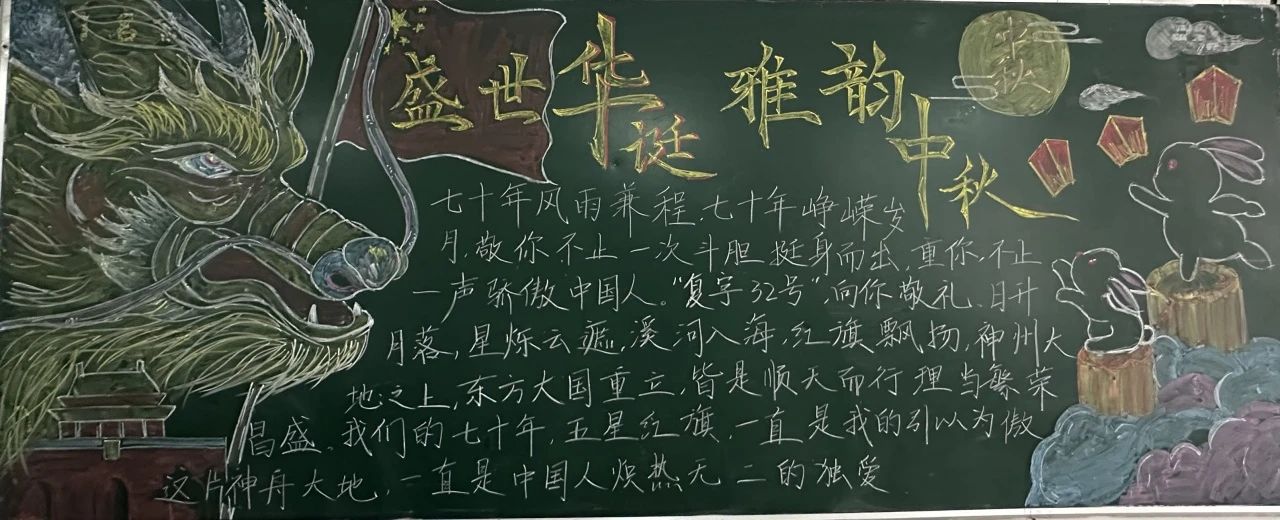 盛世华诞 雅韵中秋
中秋
七十年风雨兼程,七十年峥嵘岁
月,敬你不止一次斗胆挺身而出,重你不止
一声骄傲中国人。“复字32号”,向你敬礼、日升
月落,星烁云遮,溪河入海,红旗飘扬,神州大
地之上,东方大国重立,皆是顺天而行理当繁荣
昌盛。我们的七十年,五星红旗,一直是我的引以为傲
这片神舟大地,一直是中国人炽热无二的独爱